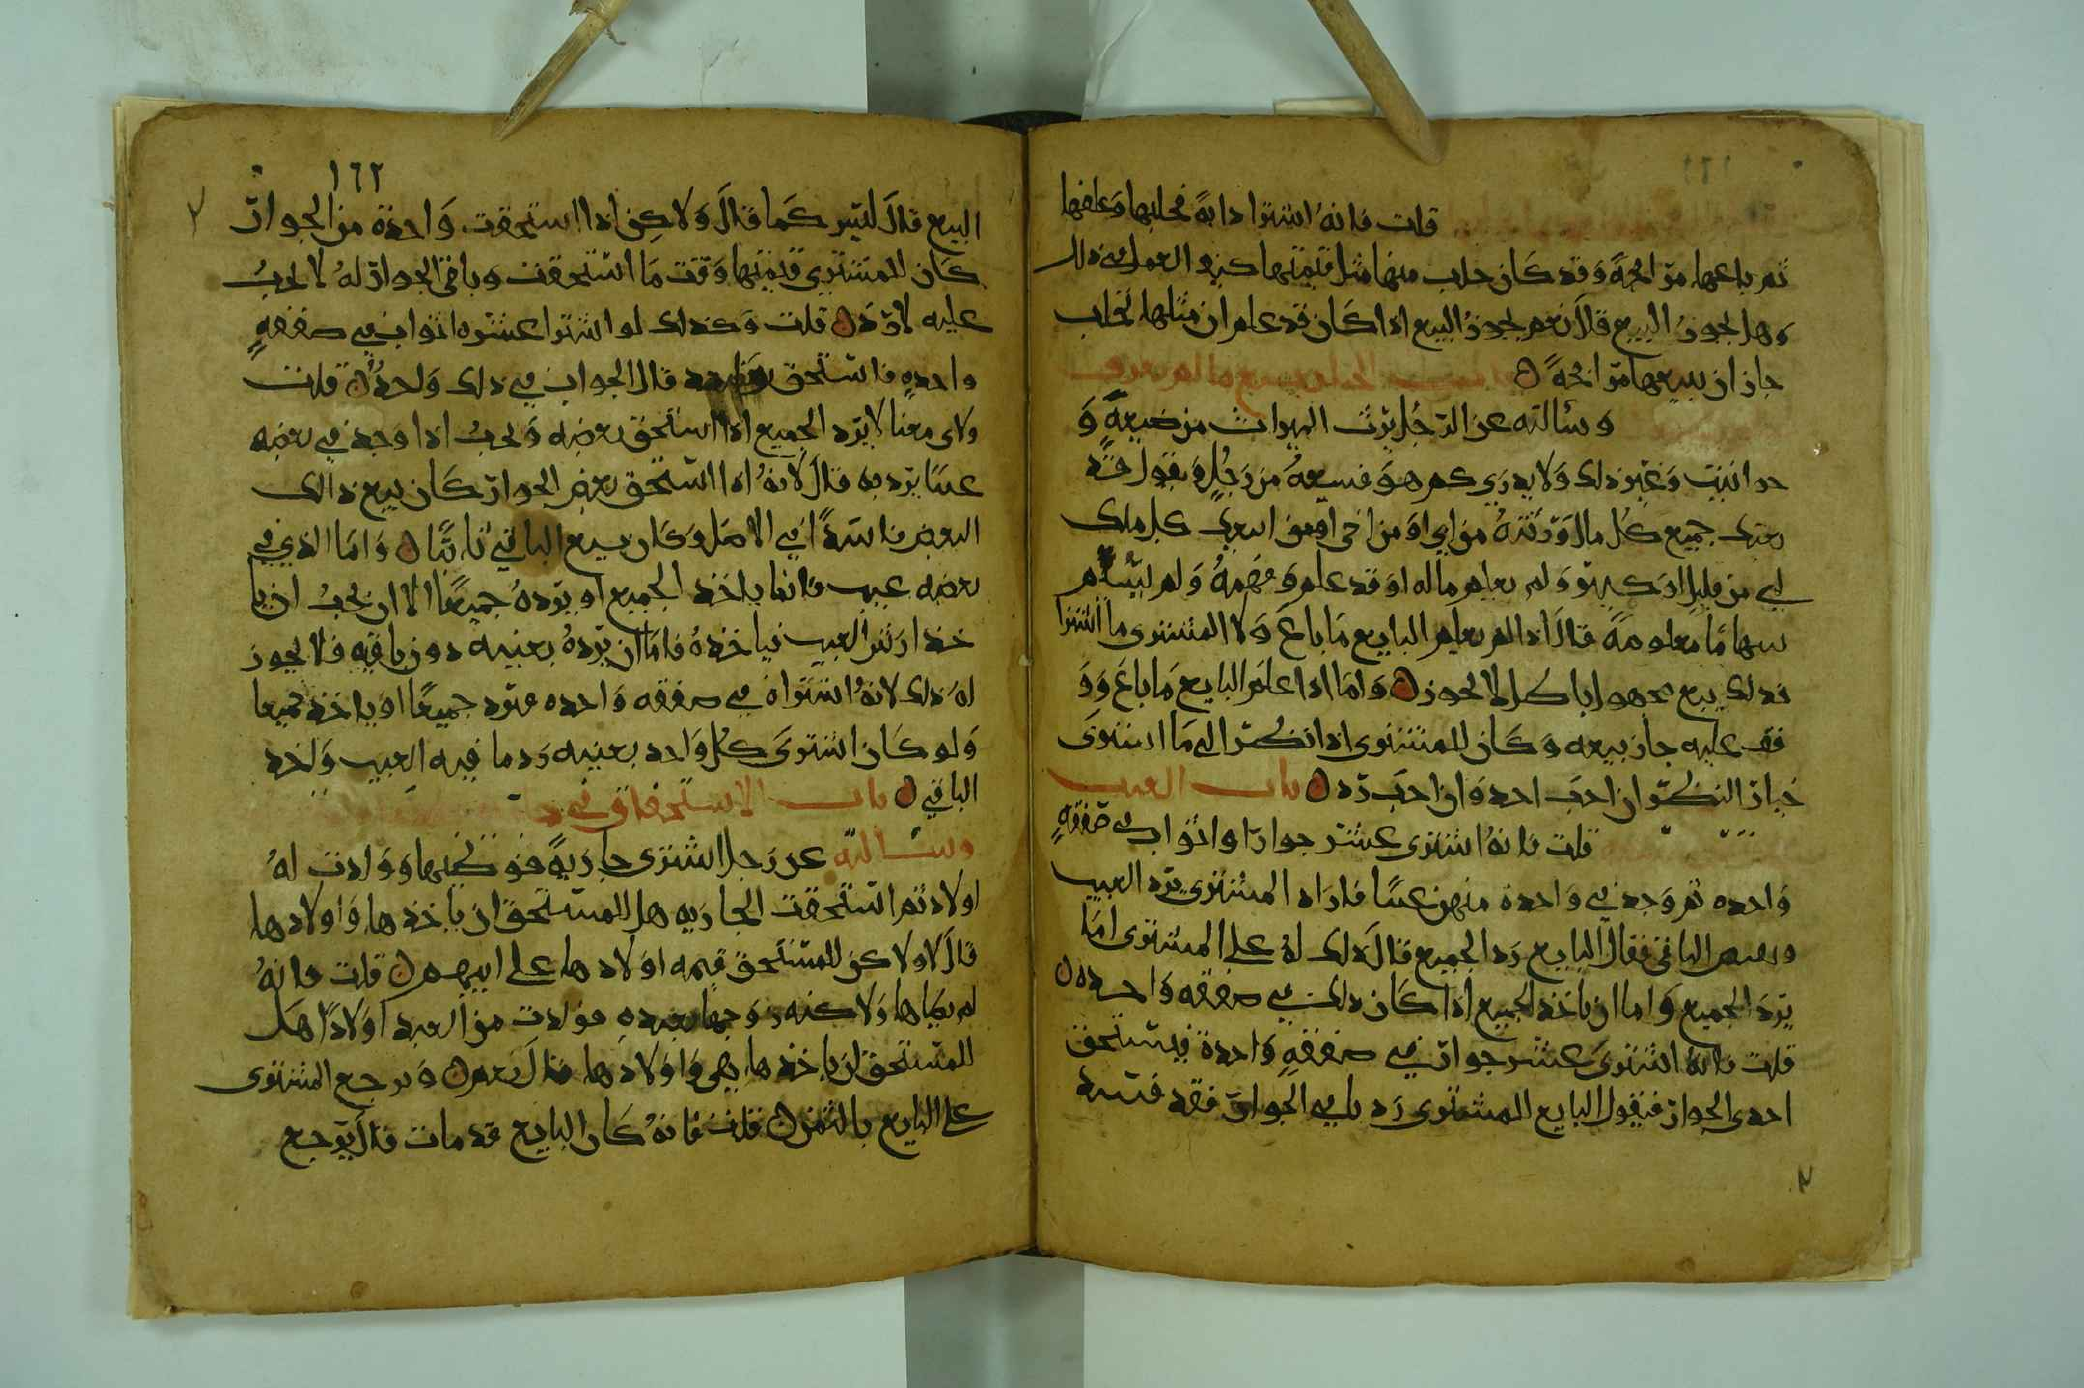 قلت فانه اشترا دابة فحلبها وعلفها
ثم باعها مرابحة وقد كان حلب منها مثل قيمتها كيف العمل في ذلك
وهل يجوز البيع قال نعم يجوز البيع اذا كان قد علم ان مثلها تحلب
جاز ان يبيعها مرابحة باب بيع ما لم يعرف
وسالته عن الرجل يرث الميراث من ضيعة و
حوانيت وغير ذلك ولا يدري كم هو فيبيعه من رجل ويقول قد
بعتك جميع كل مال ورثته من ابي او من اخي كل ملك
لي من قليل او كثير ولم يعلم ماله او قد علم وفهمه ولم يسلم
سهاما معلومة قال اذا لم يعلم البايع ما باع ولا المشترى ما اشترا
فذلك بيع مجهول باطل لا يجوز واما اذا علم البايع ما باع وو
قف عليه جاز بيعه وكان للمشتري اذا نظر الى ما اشترى
خيار النظر ان احب اخذ وان احب رد باب العيب
قلت فانه اشترى عشر جوار او اثواب في صفقة
واحده ثم وجد في واحدة منهن عيبا فاراد المشترى يرد العيب
ويقبض الباقي فقال البايع رد الجميع قال ذلك له على المشترى اما
يرد الجميع واما ان ياخذ الجميع اذا كان ذلك في صفقه واحده
قلت فانه اشترى عشر جوار في صفقة واحدة فيستحق
احدى الجوار فيقول البايع للمشترى رد باقي الجوار فقد فسد
١٦٢
البيع قال ليس كما قال ولاكن اذا استحقت واحدة من الجوار
كان للمشتري قيمتها وقت ما استحقت وباقي الجوار له لا يجب
عليه لا رد قلت وكذلك لو اشترا عشره اثواب في صفقة
واحده فاستحق قال الجواب في ذلك واحد قلت
ولاي معنا لا يرد الجميع اذا استحق بعضه ويجب اذا وجد في بعضه
عيبا يرد به قال لانه اذا استحق بعض الجوار كان بيع ذالك
البعض فاسدا في الاصل وكان بيع الباقي ثابتا واما الذي في
بعضه عيب فانما ياخذ الجميع او يرده جميعا الا ان يحب ان يا
خذ ارش العيب فياخذه فاما ان يرده بعينه دون باقيه فلا يجوز
له ذلك لانه اشتراه في صفقه واحده فيرد جميعا او ياخذ جميعا
ولو كان اشترى كل واحد بعينه رد ما فيه العيب واخذ
الباقي باب الاستحقاق في
وسالته عن رجل اشترى جارية فوطيها وولدت له
اولاد ثم استحقت الجاريه هل للمستحق ان ياخذها واولادها
قال لا ولاكن للمستحق قيمه اولادها على ابيهم قلت فانه
لم يطاها ولاكنه زوجها بعبده فولدت من العبد اولادا هل
للمستحق ان ياخذها هي واولادها قال نعم ويرجع المشترى
على البايع بالثمن قلت فانه كان البايع قد مات قال يرجع